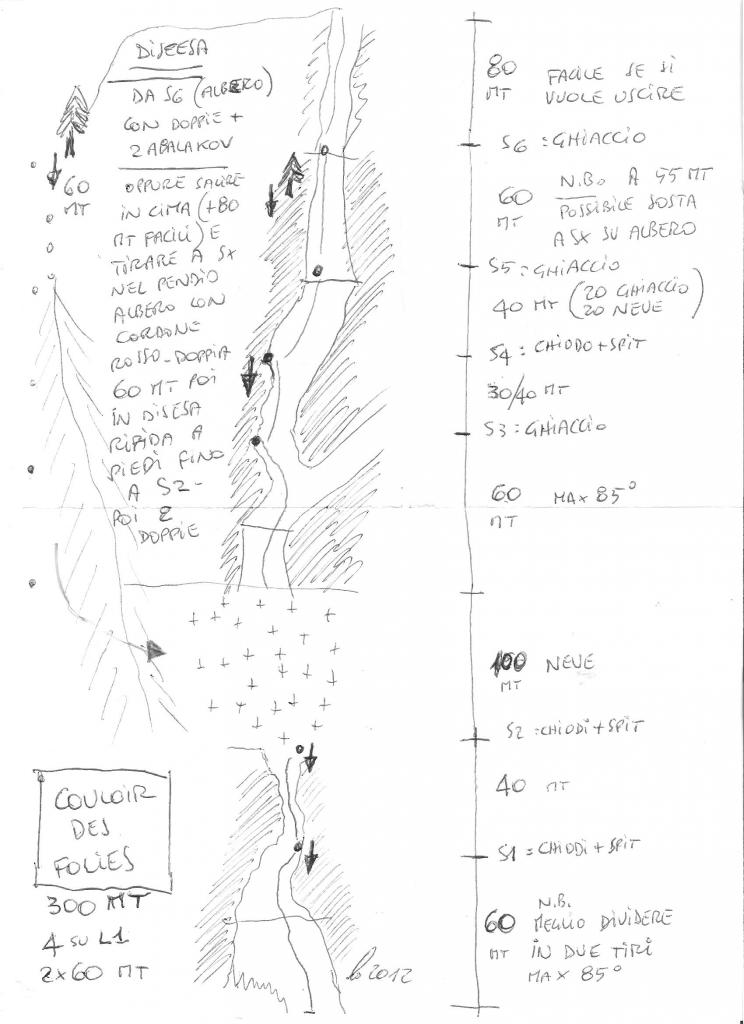 DISCESA
DA S6 (ALBERO)
CON DOPPIE +
2 ABALAKOV
60
MT
OPPURE SALIRE
IN CIMA (+80
MT FACILI) E
TIRARE A SX
NEL PENDIO
ALBERO CON
CORDONE
ROSSO-DOPPIA
60 MT POI
IN DISESA
RIPIDA A
PIEDI FINO
A S2-
POI 2
DOPPIE
COULOIR
DES
FOLIES
300 MT
4 SU L1
2x60 MT
2012
80
MT
FACILE SE SI
VUOLE USCIRE
S6 = GHIACCIO
60
MT
N.B. A 55 MT
POSSIBILE SOSTA
A SX SU ALBERO
S5 = GHIACCIO
40 MT (20 GHIACCIO
20 NEVE)
S4 = CHIODO + SPIT
30/40 MT
S3 = GHIACCIO
60
MT
MAX 85°
100
MT
NEVE
S2 = CHIODI + SPIT
40 MT
S1 = CHIODI + SPIT
N.B.
60 MEGLIO DIVIDERE
MT IN DUE TIRI
MAX 85°